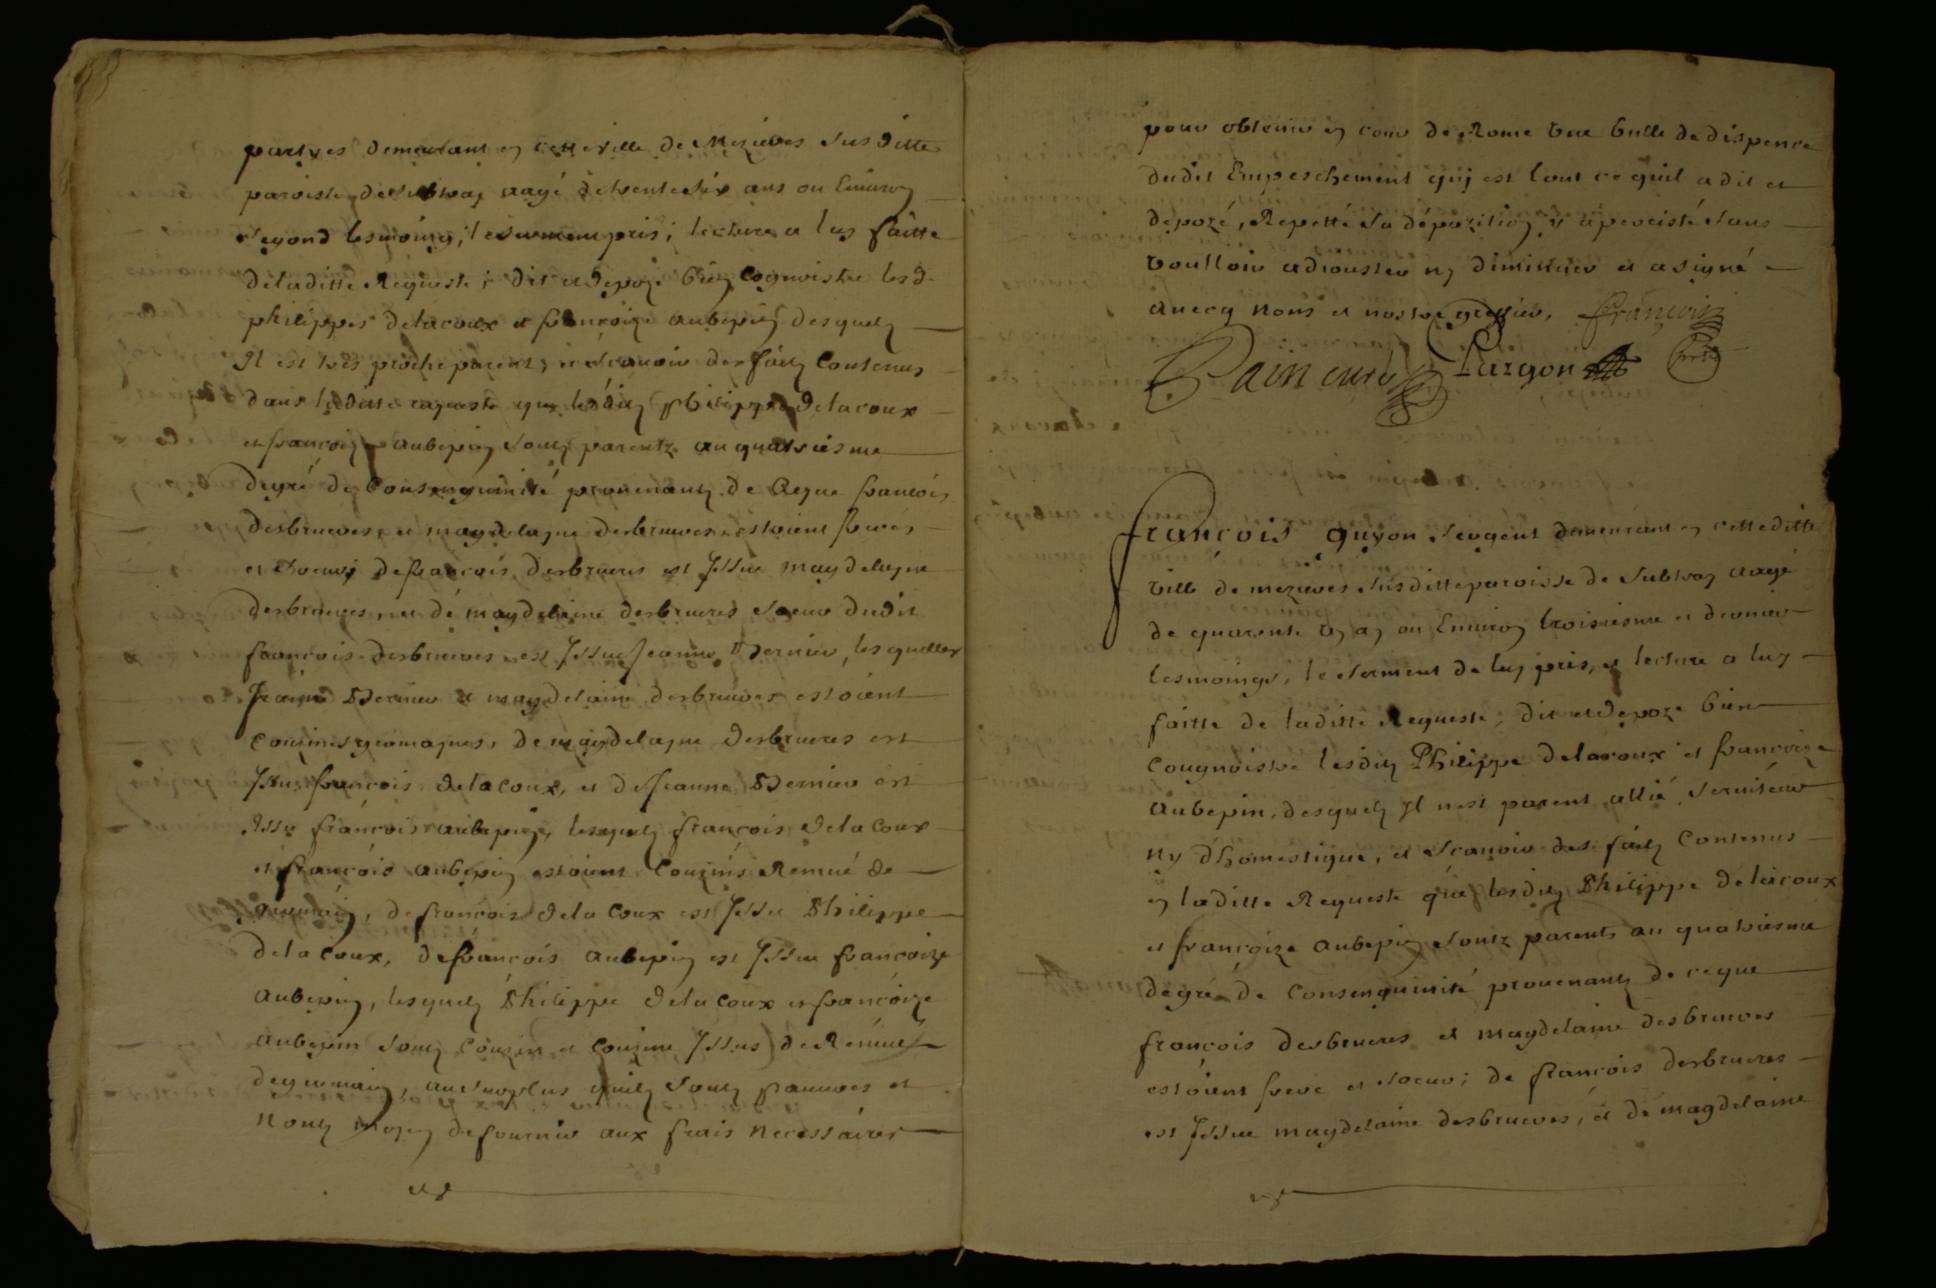 partyes demeurant en cette ville de Mezieres susditte
paroisse de Subtray aagé de trente six ans ou Environ
segond tesmoing, le serment pris, lecture a luy faitte
de laditte Requeste, dit et depoze bien cognoistre lesd.
philippes delacoux et francoize aubepin desquelz
Il est tres proche parent, et scauoir des faitz Contenus
dans laditte requeste que lesditz philippe delacoux
et francoize aubepin sontz parentz au quatriesme
degré de Consenguinité prouenantz de ceque francois
desbrueres et magdelayne desbrueres estoient freres
et soeurs de francois desbrueres est Jssue magdelayne
desbrueres, et de magdelaine desbrueres soeur dudit
francois desbrueres est Jssue Jeanne Dernier, lesquelles
Jeanne Dernier et magdelaine desbrueres estoient
Couzines germaynes, de magdelayne desbrueres est
Jssu francois delacoux, et de Jeanne Dernier est
Jssu francois aubepin, lesquelz francois delacoux
et francois aubepin estoient Couzins Remué de
germain, de francois delacoux est Jssu Philippe
delacoux, de francois aubepin est Jssue francoize
aubepin, lesquelz Philippe delacoux et francoize
aubepin sontz Couzin et Couzine Jssus de Remués
de germain, au surplus quilz sontz pauures et
nontz moyen de fournir aux frais necessaires
pour obtenir en cour de Rome vne bulle de dispence
dudit Empeschement quj est tout ce quil a dit et
depozé, Repetté sa dépozition y a percisté sans
voulloir adiouster ny diminuer et a signé
auecq nous et nostre greffier, francois
Pain curé Largon
francois guyon sergent demeurant en cetteditte
ville de mezieres susditte paroisse de subtray aagé
de quarente vn an ou Enuiron troisiesme et dernier
tesmoings, le serment de luy pris, et lecture a luy
faitte de laditte Requeste, dit et depoze bien
cougnoistre lesditz Philippe delacoux et francoize
aubepin, desquelz Jl n'est parent, allié, seruiteur
ny dhomestique, et scauoir des faitz Contenus
en laditte Requeste que lesditz Philippe delacoux
et francoize aubepin sontz parents au quatriesme
degré de Consenguinité prouenantz de ceque
francois desbrueres et magdelaine desbrueres
estoient frere et soeur, de francois desbrueres
est Jssue magdelaine desbrueres, et de magdelaine